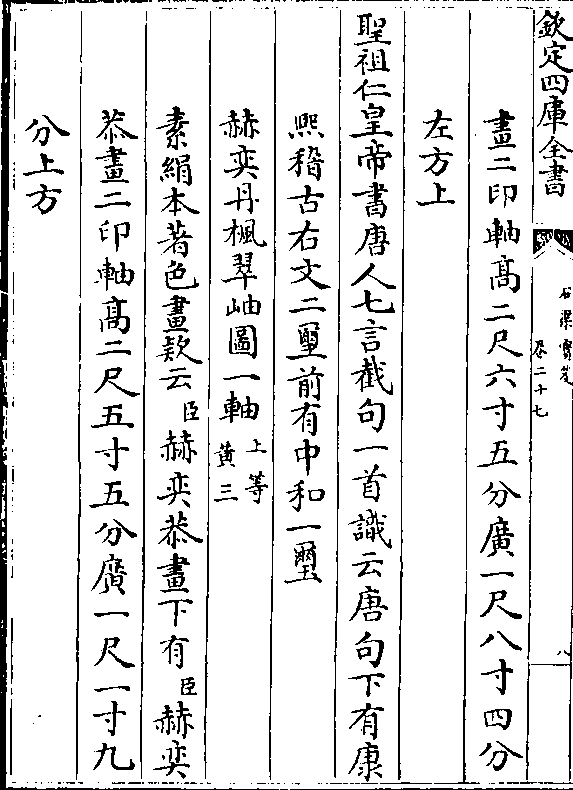 欽定四庫全書
石渠寶笈
卷二十七
八
畫二印軸髙二尺六寸五分廣一尺八寸四分
左方上
聖祖仁皇帝書唐人七言截句一首識云唐句下有康
熙稽古右文二璽前有中和一璽
赫奕丹楓翠岫圖一軸 上等 黃三
素絹本著色畫款云臣赫奕恭畫下有臣赫奕
恭畫二印軸髙二尺五寸五分廣一尺一寸九
分上方